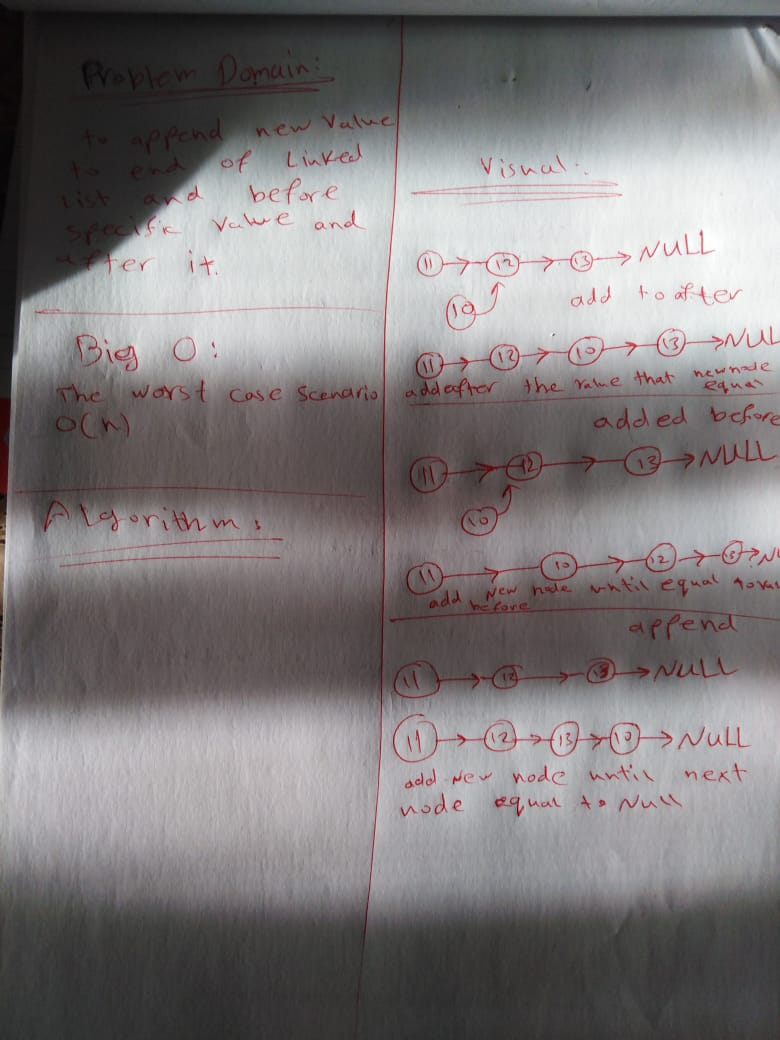 Problem Domain:
to append new value
to end of Linked
List and before
specific value and
after it.
Big O:
The worst case scenario
O(n)
Algorithm:
Visual:
11 12 13 NULL
10
add to after
11 12 10 13 NUL
add after the value that newnode
equal
added before
11 12 13 NULL
10
11 10 12 13 NU
add New node until equal to val
before
append
11 12 13 NULL
11 12 13 10 NULL
add New node until next
node equal to Null